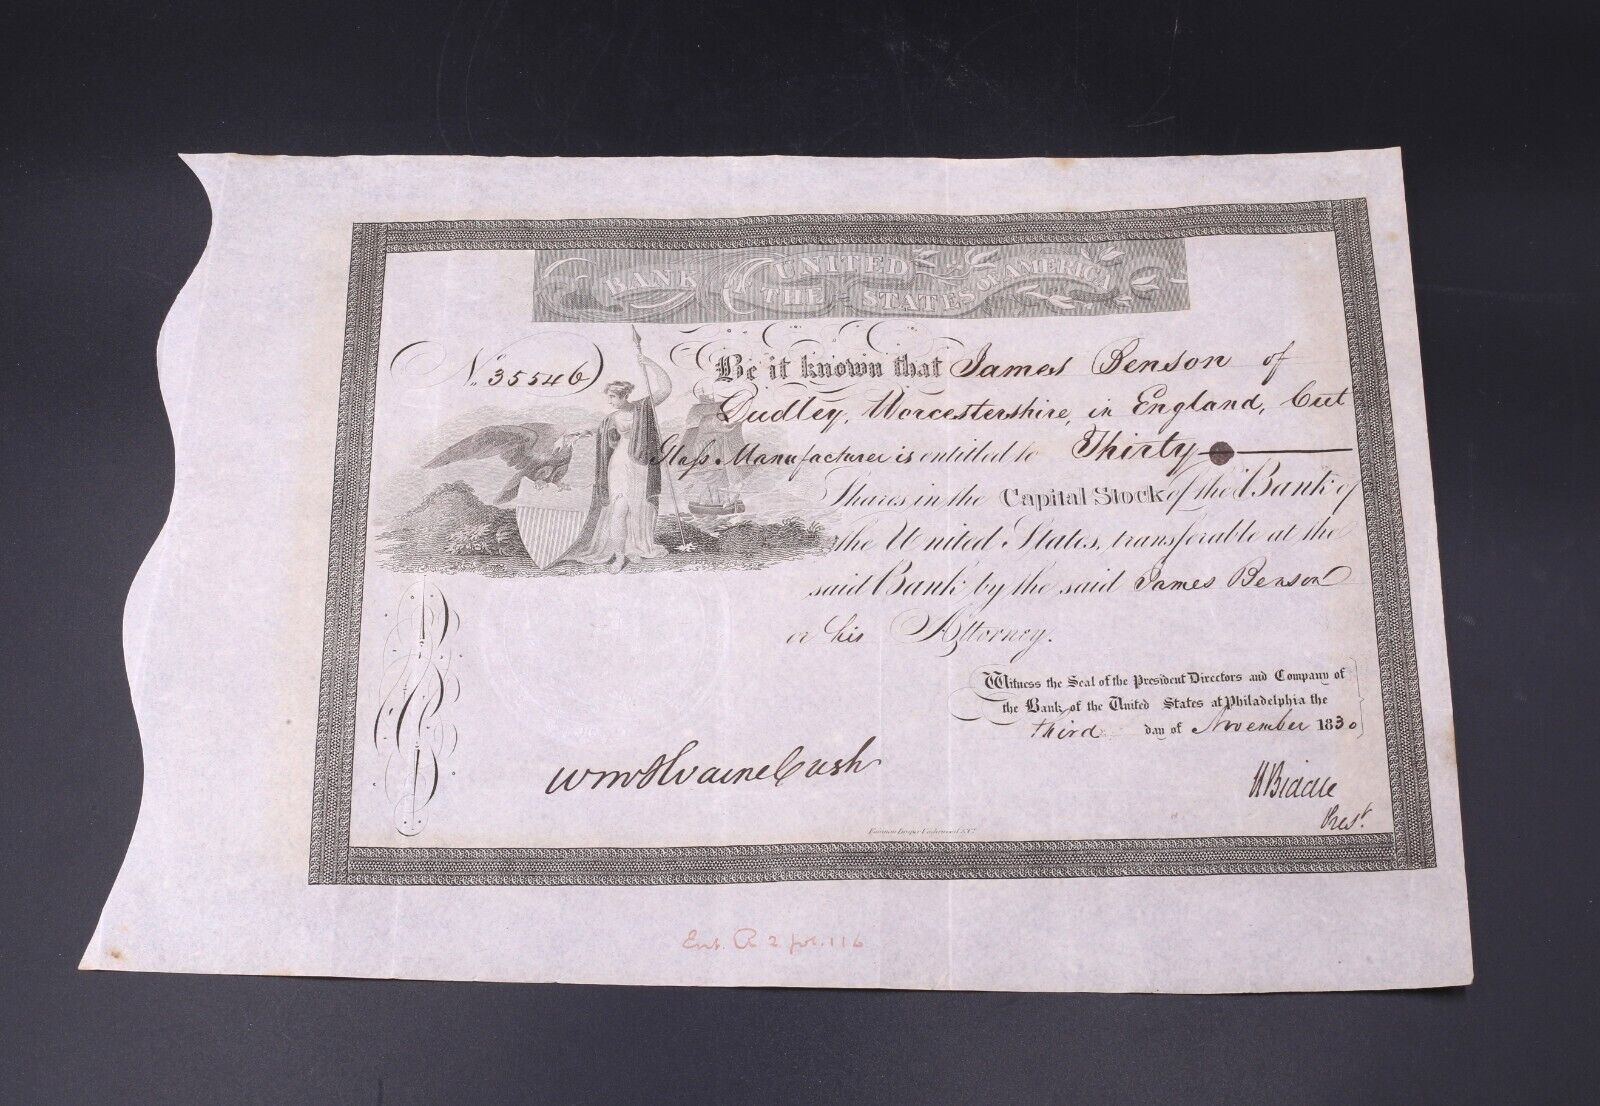 BANK OF THE UNITED STATES OF AMERICA
No. 35546
Be it known that James Benson of
Dudley, Worcestershire, in England, Cut
Glass Manufacturer is entitled to Thirty
Shares in the Capital Stock of the Bank of
the United States, transferable at the
said Bank by the said James Benson
or his Attorney.
Witness the Seal of the President Directors and Company of
the Bank of the United States at Philadelphia the
third day of November 1830
Wm McIlvaine Cash
N Biddle
Prest.
Fairman Draper Underwood & Co.
Ent. R 2 fol. 116